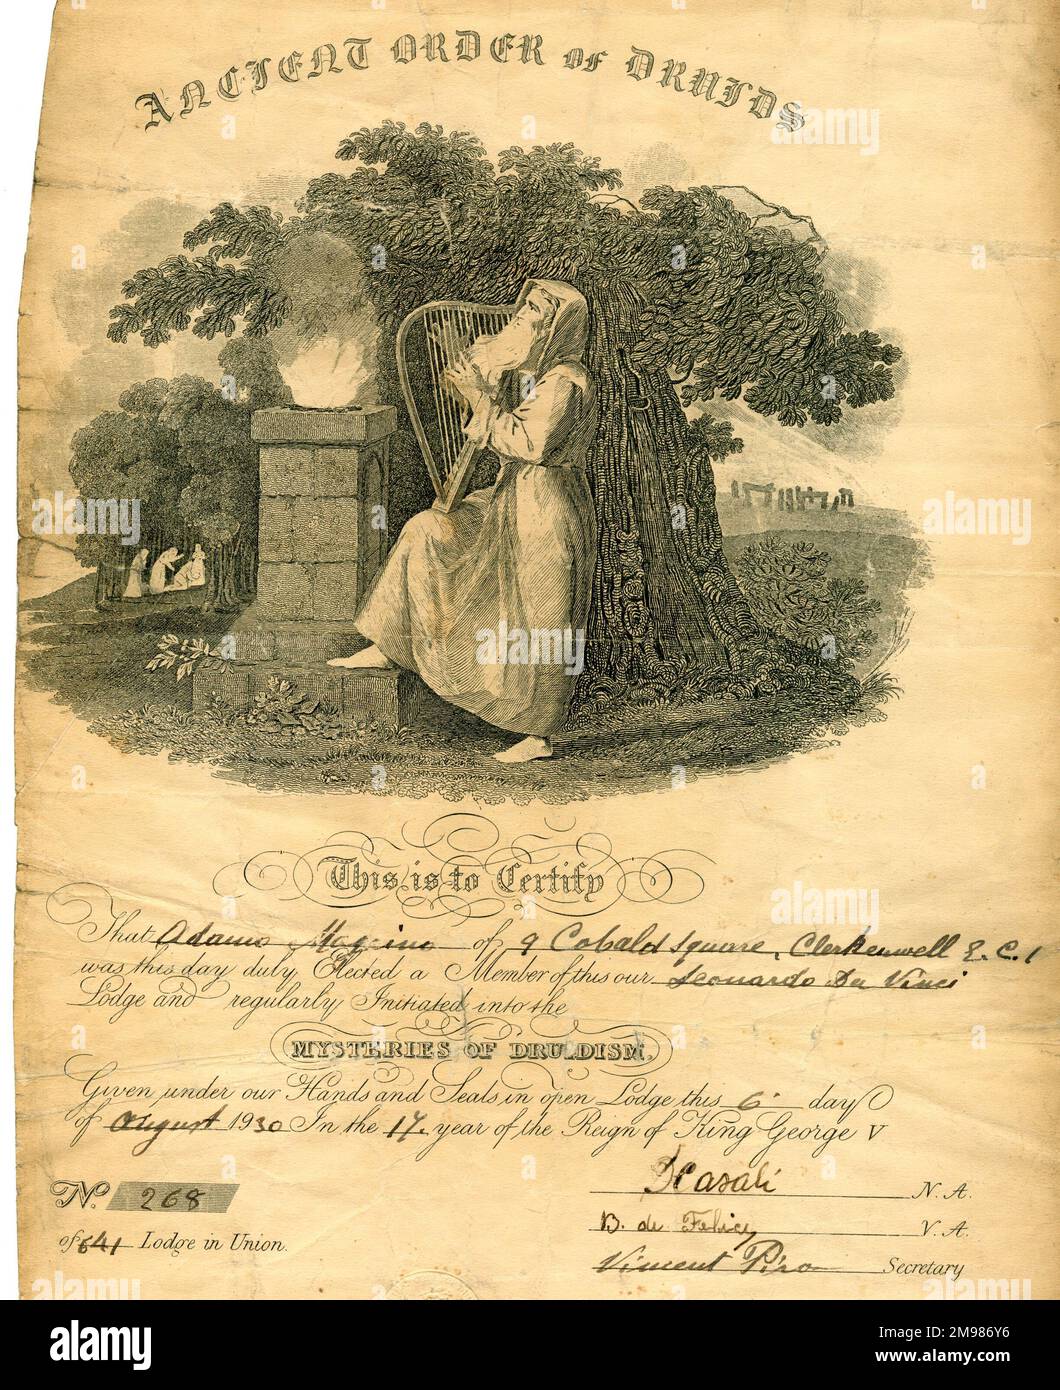 ANCIENT ORDER OF DRUIDS
This is to Certify
That Adamo of 9 Cobald square, Clerkenwell E.C.1
was this day duly Elected a Member of this our Leonardo Da Vinci
Lodge and regularly Initiated into the
MYSTERIES OF DRUIDISM.
Given under our Hands and Seals in open Lodge this 6 day
of August 1930 In the 17. year of the Reign of King George V
No. 268
of 641 Lodge in Union.
Casali N.A.
B. de Felicy V.A.
Vincent Piro Secretary
a alamy
alamy
Image ID: 2M986Y6
www.alamy.com